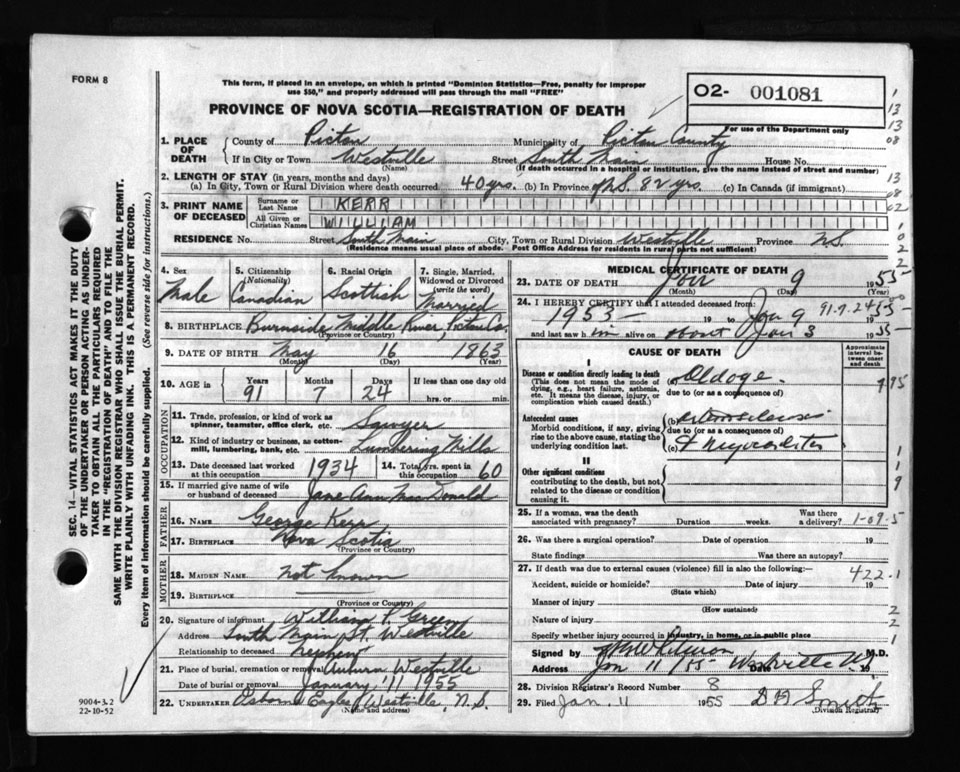 FORM 8
This form, if placed in an envelope, on which is printed "Dominion Statistics—Free, penalty for improper
use $50," and properly addressed will pass through the mail "FREE"
PROVINCE OF NOVA SCOTIA—REGISTRATION OF DEATH
O2- 001081
For use of the Department only
1. PLACE OF DEATH
County of Pictou Municipality of Pictou County
If in City or Town Westville Street South Main House No.
(Name) (If death occurred in a hospital or institution, give the name instead of street and number)
2. LENGTH OF STAY (in years, months and days)
(a) In City, Town or Rural Division where death occurred 40 yrs. (b) In Province of N.S. 82 yrs. (c) In Canada (if immigrant)
3. PRINT NAME OF DECEASED
Surname or Last Name KERR
All Given or Christian Names WILLIAM
RESIDENCE No. Street South Main City, Town or Rural Division Westville Province N.S.
(Residence means usual place of abode. Post Office Address for residents in rural parts not sufficient)
4. Sex Male
5. Citizenship (Nationality) Canadian
6. Racial Origin Scottish
7. Single, Married, Widowed or Divorced (write the word) Married
8. BIRTHPLACE Burnside Middle River, Pictou Co.
9. DATE OF BIRTH May 16 1863
(Month) (Day) (Year)
10. AGE in Years 91 Months 7 Days 24 If less than one day old
hrs. or min.
OCCUPATION
11. Trade, profession, or kind of work as spinner, teamster, office clerk, etc. Sawyer
12. Kind of industry or business, as cotton-mill, lumbering, bank, etc. Lumbering Mills
13. Date deceased last worked at this occupation 1934 14. Total yrs. spent in this occupation 60
15. If married give name of wife or husband of deceased Jane Ann MacDonald
FATHER
16. NAME George Kerr
17. BIRTHPLACE Nova Scotia
(Province or Country)
MOTHER
18. MAIDEN NAME not known
19. BIRTHPLACE
(Province or Country)
20. Signature of informant William P. Green
Address South Main St. Westville
Relationship to deceased nephew
21. Place of burial, cremation or removal Auburn Westville
Date of burial or removal January 11 1955
22. UNDERTAKER Westville, N.S.
(Name and address)
MEDICAL CERTIFICATE OF DEATH
23. DATE OF DEATH Jan 9 1955
(Month) (Day) (Year)
24. I HEREBY CERTIFY that I attended deceased from:
1953 19 to Jan 9 1955
and last saw him alive on about Jan 3 1955
91.7.24
CAUSE OF DEATH
Approximate interval between onset and death
I
Disease or condition directly leading to death
(This does not mean the mode of dying, e.g., heart failure, asthenia, etc. It means the disease, injury, or complication which caused death.)
(a) Old age
due to (or as a consequence of)
Antecedent causes
Morbid conditions, if any, giving rise to the above cause, stating the underlying condition last.
(b)
due to (or as a consequence of)
(c) & Myocarditis
II
Other significant conditions
contributing to the death, but not related to the disease or condition causing it.
25. If a woman, was the death associated with pregnancy? Duration weeks. Was there a delivery?
1-09-5
26. Was there a surgical operation? Date of operation 19
State findings Was there an autopsy?
27. If death was due to external causes (violence) fill in also the following:—
422.1
Accident, suicide or homicide? Date of injury 19
(State which)
Manner of injury
(How sustained)
Nature of injury
Specify whether injury occurred in industry, in home, or in public place
Signed by M.D.
Address Jan 11/55 Westville Date 19
28. Division Registrar's Record Number 8
29. Filed Jan. 11 1955 Smith
(Division Registrar)
SEC. 14—VITAL STATISTICS ACT MAKES IT THE DUTY
OF THE UNDERTAKER OR PERSON ACTING AS UNDER-
TAKER TO OBTAIN ALL THE PARTICULARS REQUIRED
IN THE "REGISTRATION OF DEATH" AND TO FILE THE
SAME WITH THE DIVISION REGISTRAR WHO SHALL ISSUE THE BURIAL PERMIT.
WRITE PLAINLY WITH UNFADING INK. THIS IS A PERMANENT RECORD.
Every item of information should be carefully supplied. (See reverse side for instructions.)
9004-3.2
22-10-52